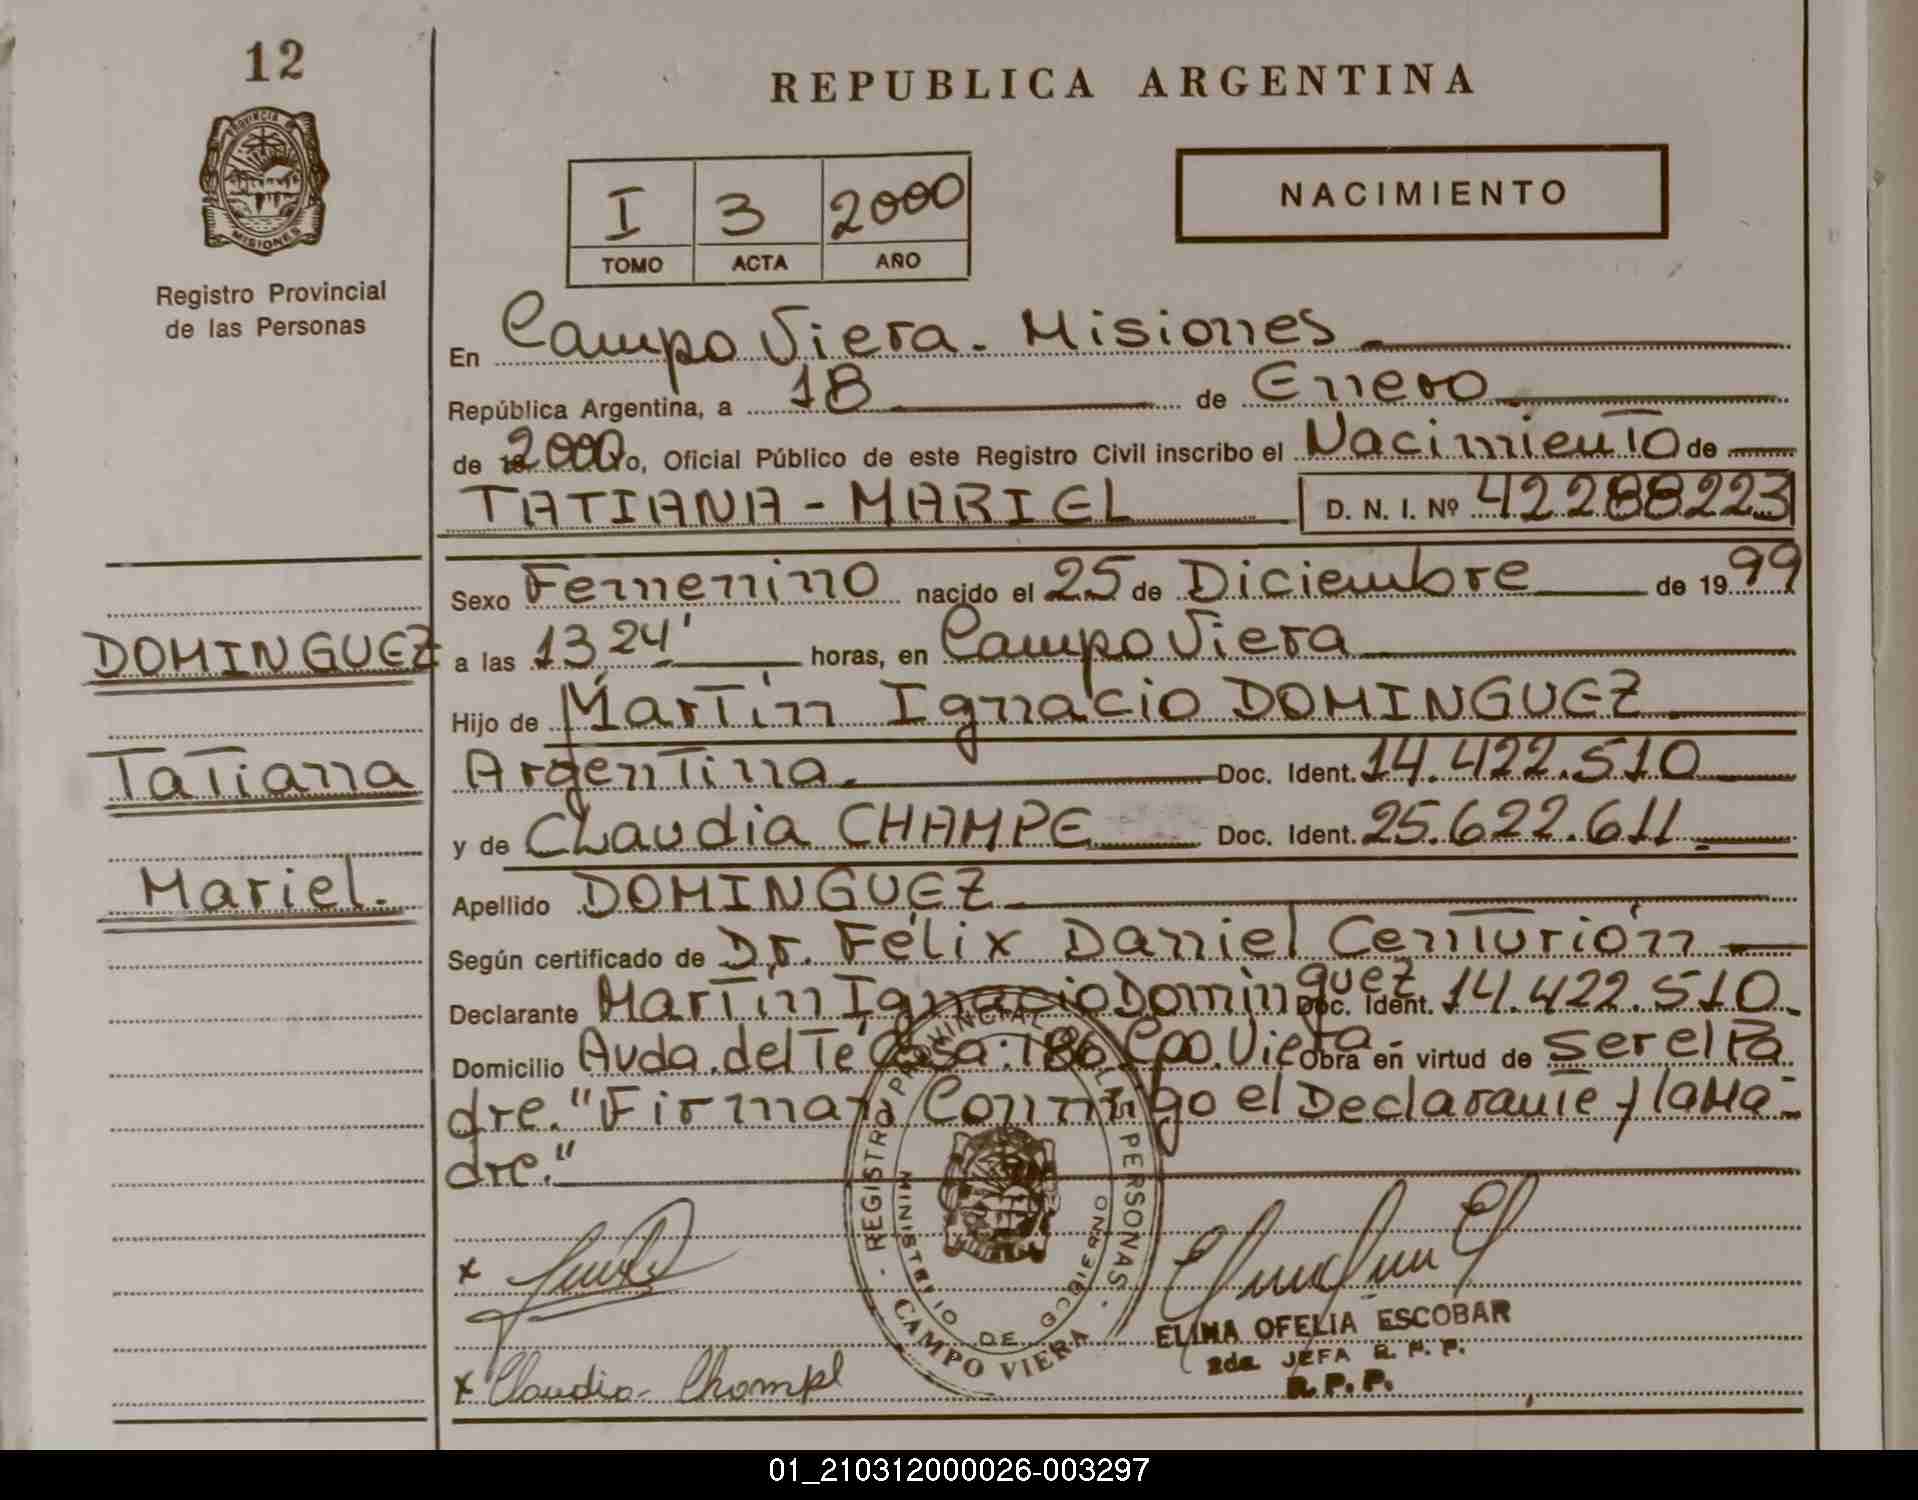 12
REPUBLICA ARGENTINA
PROVINCIA DE
MISIONES
Registro Provincial
de las Personas
I 3 2000
TOMO ACTA AÑO
NACIMIENTO
En Campo Viera. Misiones
República Argentina, a 18 de Enero
de 2000 o, Oficial Público de este Registro Civil inscribo el Nacimiento de
TATIANA - MARIEL D. N. I. Nº 42288223
Sexo Femenino nacido el 25 de Diciembre de 1999
DOMINGUEZ
a las 13 24' horas, en Campo Viera
Hijo de Martín Ignacio DOMINGUEZ
Tatiana
Argentina. Doc. Ident. 14.422.510
y de Claudia CHAMPE Doc. Ident. 25.622.611
Mariel.
Apellido DOMINGUEZ
Según certificado de Dr. Félix Daniel Centurión
Declarante Martín Ignacio Dominguez Doc. Ident. 14.422.510
Domicilio Avda. del Té Casa: 186 Cpo. Viera Obra en virtud de ser el Pa
dre. "Firman Conmigo el Declarante y la Ma-
dre."
REGISTRO PROVINCIAL DE LAS PERSONAS
MINISTERIO DE GOBIERNO
CAMPO VIERA
ELIMA OFELIA ESCOBAR
2da JEFA R. P. P.
R. P. P.
x
x Claudia Chompe
01_210312000026-003297